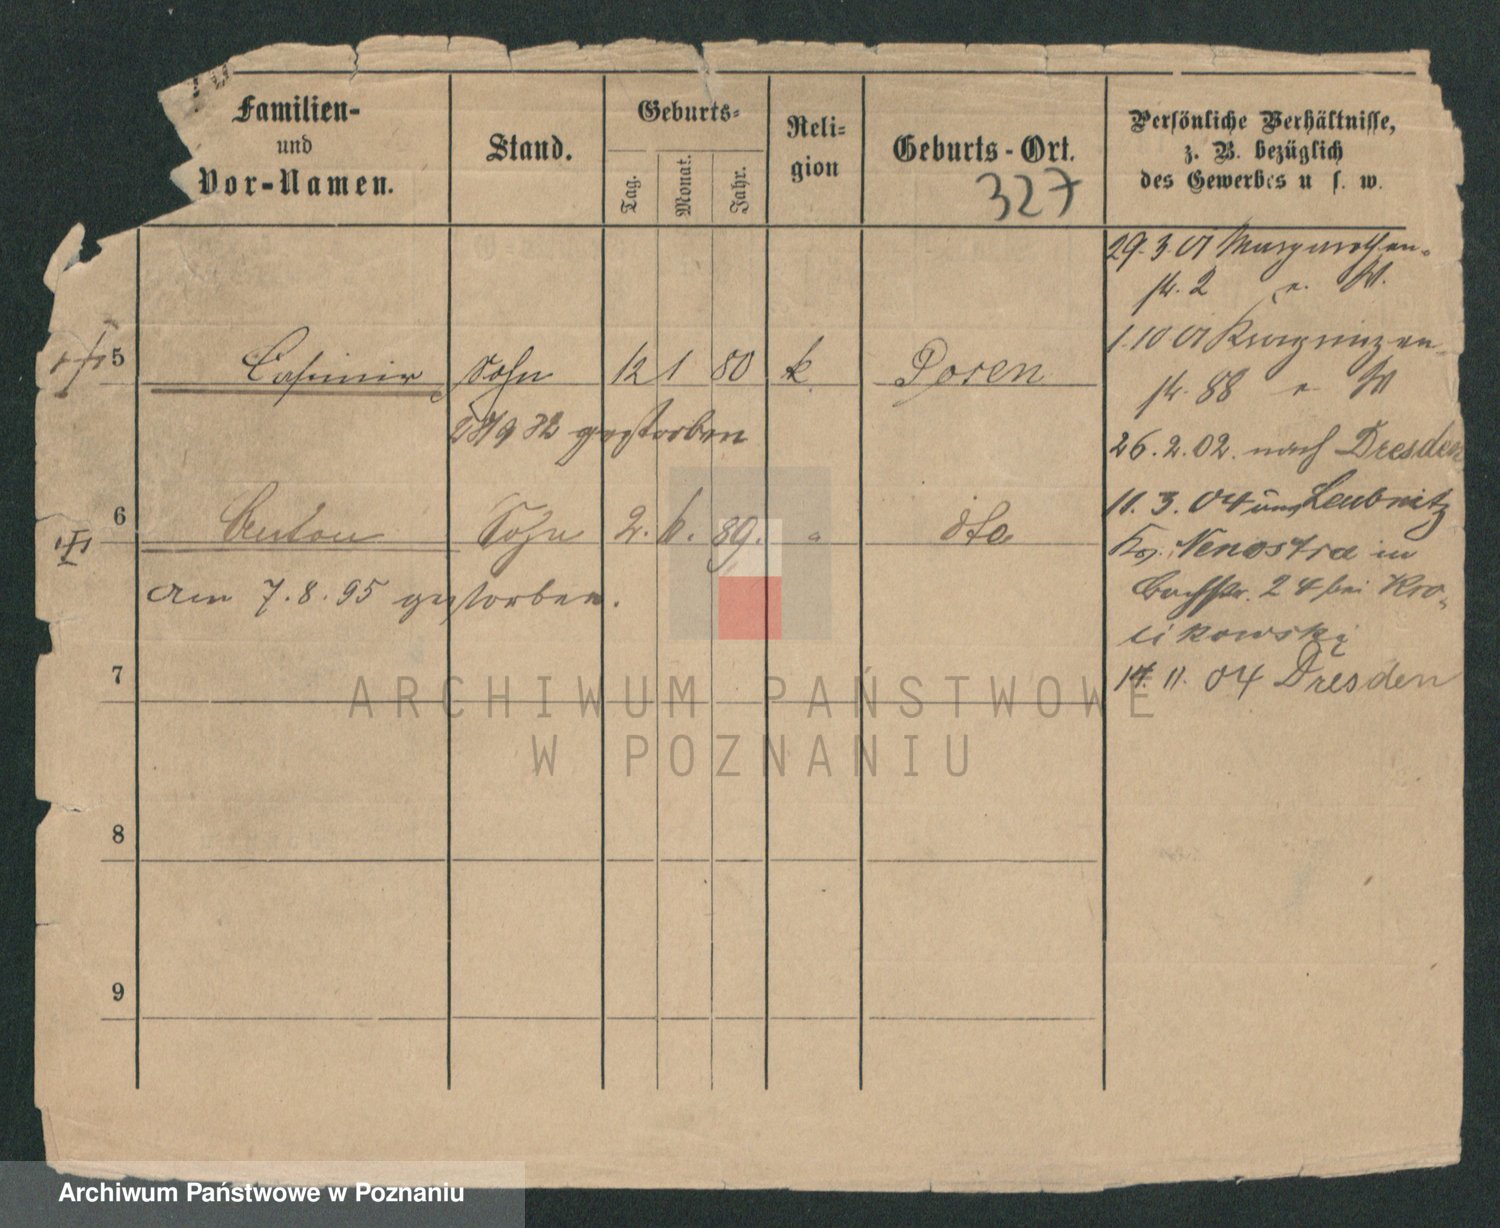 Familien-
und
Vor-Namen.
Stand.
Geburts-
Tag.
Monat.
Jahr.
Reli-
gion
Geburts-Ort.
327
Persönliche Verhältnisse,
z. B. bezüglich
des Gewerbes u. s. w.
29.3.01
str. 2
1.10 01
str. 88
26.2.02. nach Dresden
11.3.04 Leubnitz
Nenostra in
24 bei Kro-
likowski
11.04 Dresden
5 Casimir Sohn 12 1 80 k. Posen
gestorben
6 Anton Sohn 2. 6. 89. " dto
am 7.8.95 gestorben.
7
8
9
ARCHIWUM PAŃSTWOWE
W POZNANIU
Archiwum Państwowe w Poznaniu